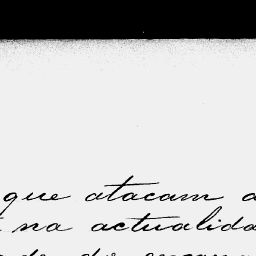 que atacam a
na actualida
de do